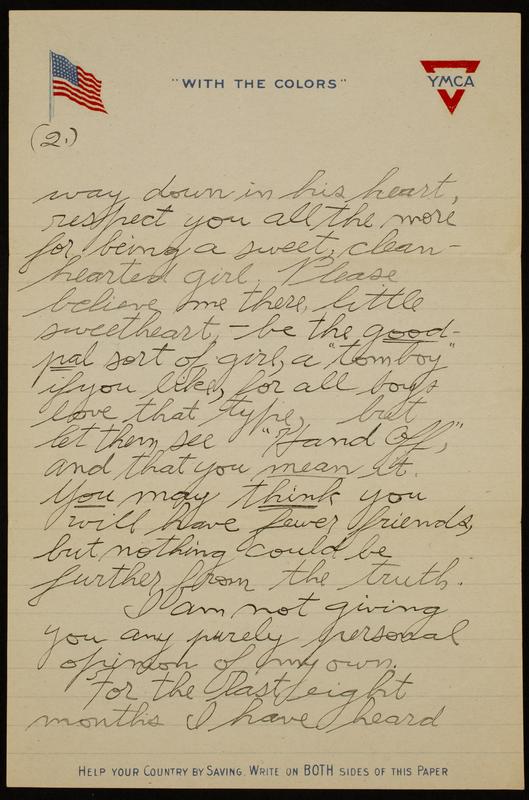 "WITH THE COLORS"
YMCA
(2.)
way down in his heart,
respect you all the more
for being a sweet, clean-
hearted girl. Please
believe me there, little
sweetheart, - be the good-
pal sort of girl, a "tomboy"
if you like, for all boys
love that type, but
let them see "Hand Off,"
and that you mean it.
You may think you
will have fewer friends,
but nothing could be
further from the truth.
I am not giving
you any purely personal
opinion of my own.
For the last eight
months I have heard
HELP YOUR COUNTRY BY SAVING. WRITE ON BOTH SIDES OF THIS PAPER